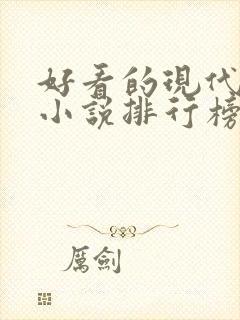 好看的現代
小說排行榜
厲劍